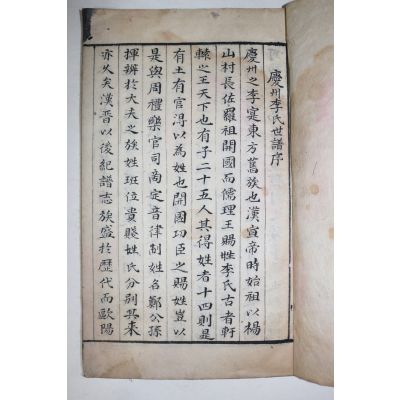 慶州李氏世譜序
慶州之李寔東方舊族也漢宣帝時始祖以楊
山村長佐羅祖開國而儒理王賜姓李氏古者軒
轅之王天下也有子二十五人其得姓者十四則是
有土有官得以為姓也開國功臣之賜姓豈以
是與周禮樂官司商定音律制姓名鄭公孫
揮辨於大夫之族姓班位貴賤姓氏分別其來
亦久矣漢晉以後紀譜志族盛於歷代而歐陽